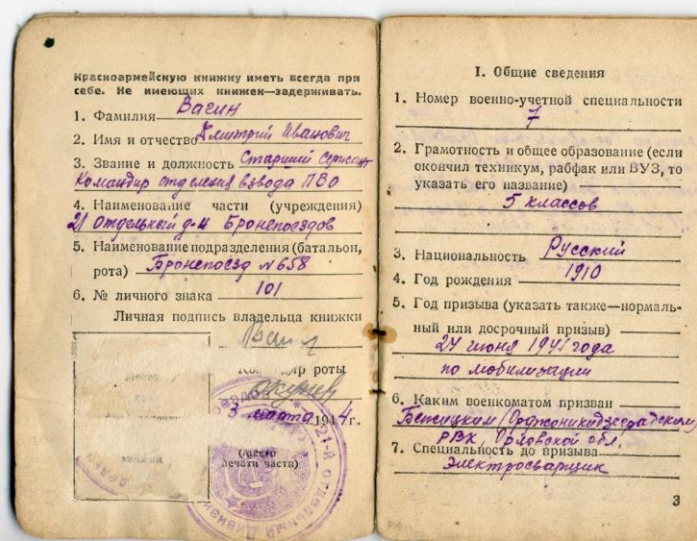 Красноармейскую книжку иметь всегда при
себе. Не имеющих книжек—задерживать.
1. Фамилия Вагин
2. Имя и отчество Дмитрий Иванович
3. Звание и должность Старший Сержант
Командир отделения взвода ПВО
4. Наименование части (учреждения)
21 отдельный д-н Бронепоездов
5. Наименование подразделения (батальон,
рота) Бронепоезд №658
6. № личного знака 101
Личная подпись владельца книжки
Командир роты
3 марта 1944 г.
(место
печати части)
21-й отдельный Дивизи
I. Общие сведения
1. Номер военно-учетной специальности
7
2. Грамотность и общее образование (если
окончил техникум, рабфак или ВУЗ, то
указать его название)
5 классов
3. Национальность Русский
4. Год рождения 1910
5. Год призыва (указать также—нормаль-
ный или досрочный призыв)
24 июня 1941 года
по мобилизации
6. Каким военкоматом призван
Бежицким (Орджоникидзеградским)
РВК, Орловской обл.
7. Специальность до призыва
Электросварщик
3